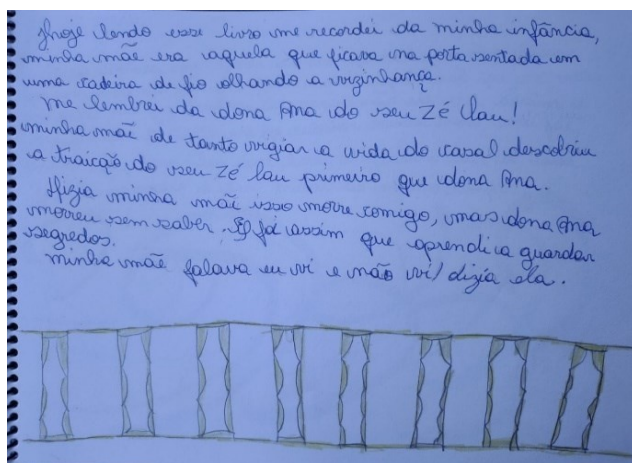 hoje lendo esse livro me recordei da minha infância,
minha mãe era aquela que ficava na porta sentada em
uma cadeira de fio olhando a vizinhança.
me lembrei da dona Ana do seu Zé lau!
minha mãe de tanto vigiar a vida do casal descobriu
a traicção do seu Zé lau primeiro que dona Ana.
dizia minha mãe isso morre comigo, mas dona Ana
morreu sem saber. foi assim que aprendi a guardar
segredos.
minha mãe falava eu vi e não vi/ dizia ela.